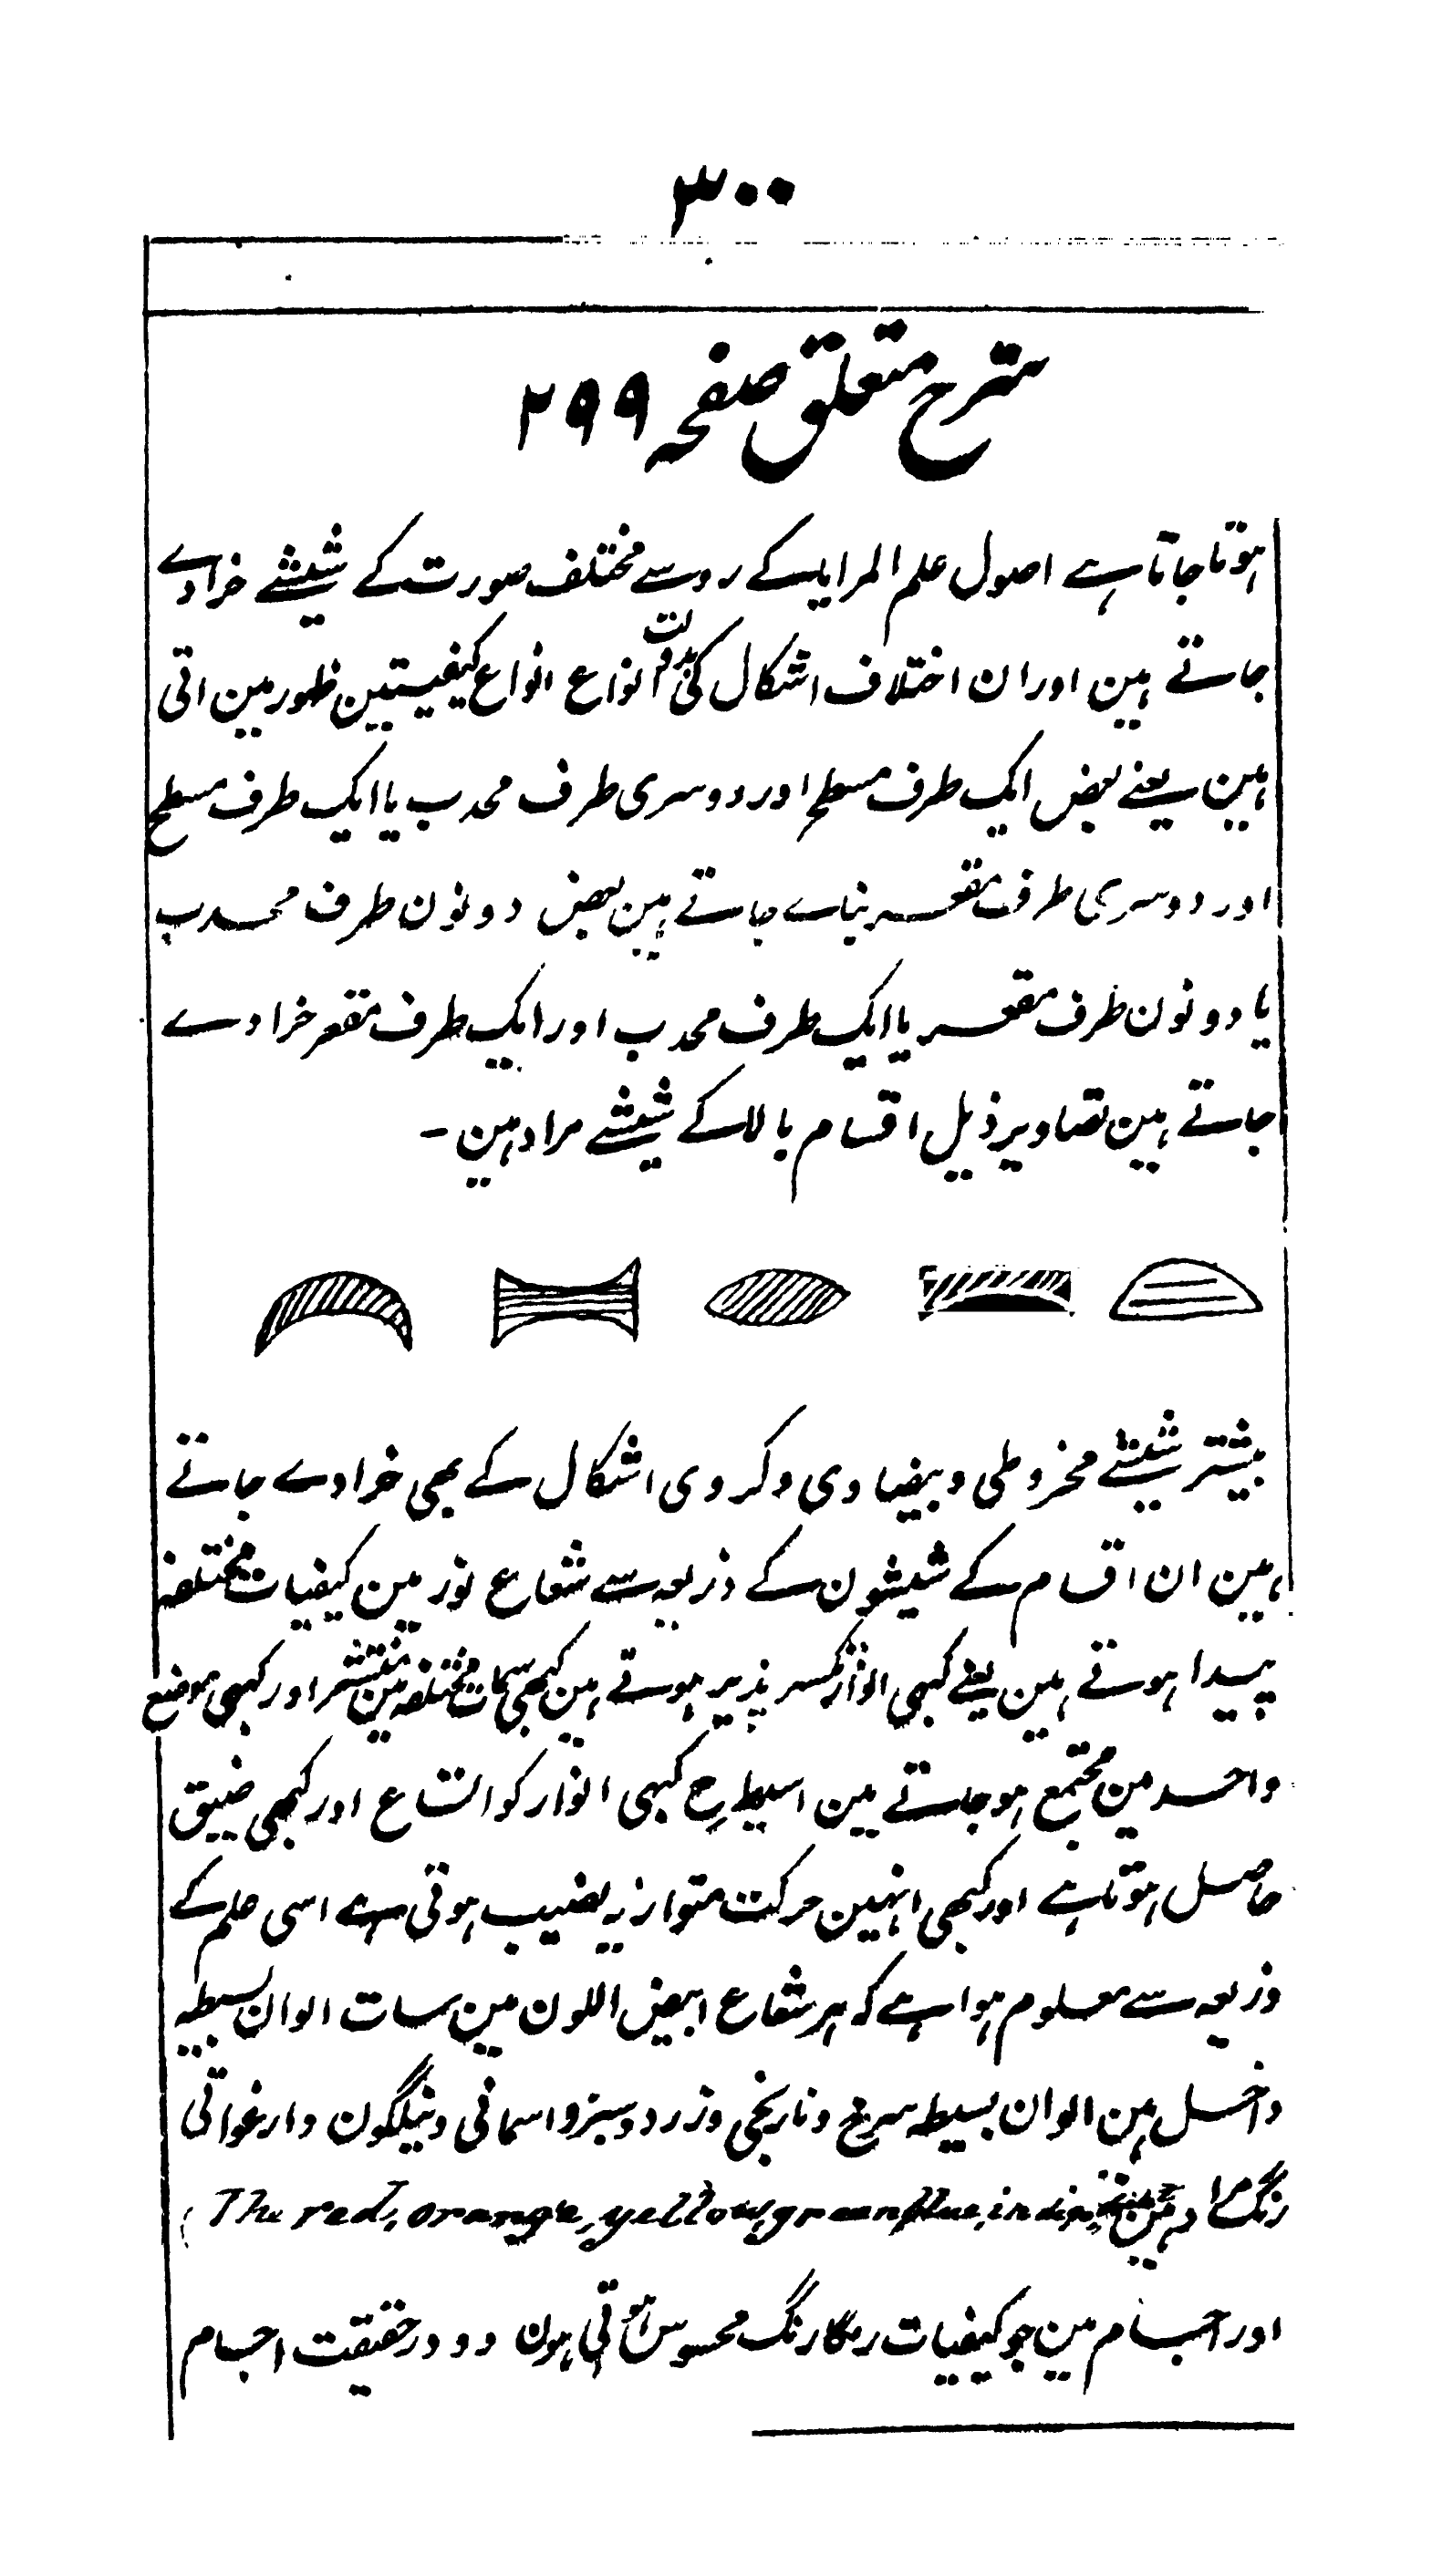 ۳۰۰
شرح متعلق صفحہ ۲۹۹
ہوتا جاتا ہے اصول علم المرایاسکے روسے مختلف صورت کے شیشے خرادے
جاتے ہین اور ان اختلاف اشکال کی بدولت انواع انواع کیفیتین ظہور مین اتی
ہین یعنے بعض ایک طرف مسطح اور دوسری طرف محدب یا ایک طرف مسطح
اور دوسری طرف مقعر بناے جاتے ہین بعض دونون طرف محدب
یا دونون طرف مقعر یا ایک طرف محدب اور ایک طرف مقعر خرادے
جاتے ہین تصاویر ذیل اقسام بالا کے شیشے مراد ہین -
بیشتر شیشے مخروطی و بیضاوی و کروی اشکال کے بھی خرادے جاتے
ہین ان اقسام کے شیشون کے ذریعہ سے شعاع نور مین کیفیات مختلفہ
پیدا ہوتے ہین یعنے کبھی انوار کسر پذیر ہوتے ہین کبھی سمات مختلفہ مین منتشر اور کبھی موضع
واحد مین مجتمع ہو جاتے ہین اسیطرح کبھی انوار کو اتساع اور کبھی ضیق
حاصل ہوتا ہے اور کبھی انہین حرکت متوازیہ نصیب ہوتی ہے اسی علم کے
ذریعہ سے معلوم ہوا ہے کہ ہر شعاع ابیض اللون مین سات الوان بسیطہ
داخل ہین الوان بسیطہ سرخ و نارنجی و زرد و سبز و اسمانی و نیلگون و ارغوانی
رنگ مراد ہین (The red, orange, yellow, green, blue, indigo,
اور اجسام مین جو کیفیات رنگا رنگ محسوس ہوتی ہین وہ درحقیقت اجسام